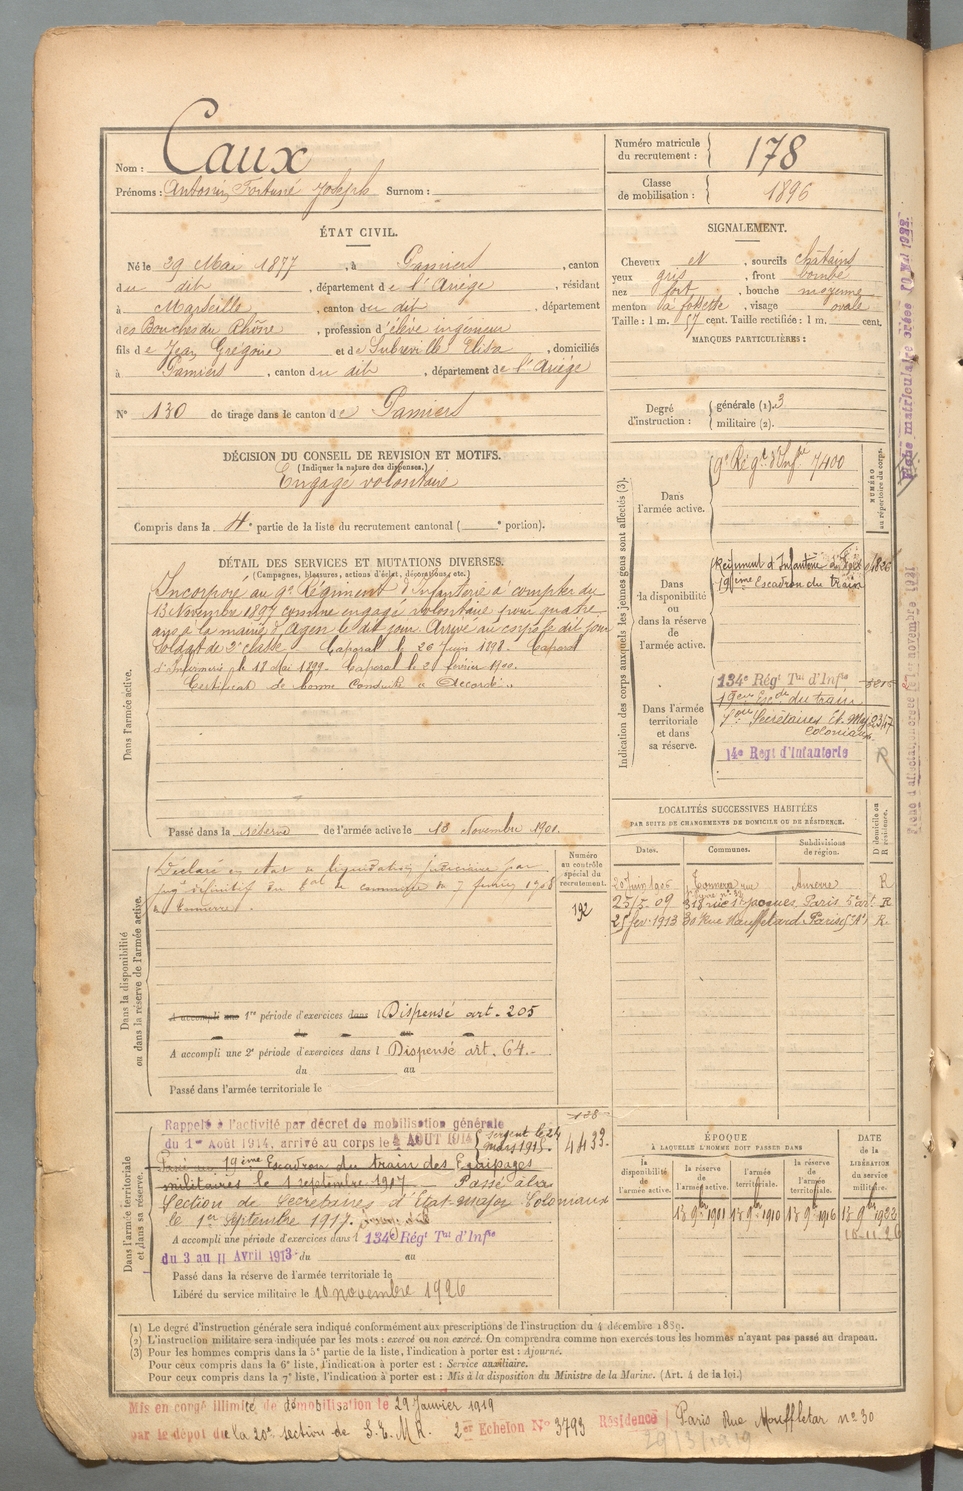 Nom : Caux
Prénoms : Antonin, Fortuné Joseph Surnom :
Numéro matricule du recrutement : 178
Classe de mobilisation : 1896
ÉTAT CIVIL.
Né le 29 Mai 1877, à Pamiers, canton
du dit, département de l'Ariège, résidant
à Marseille, canton du dit, département
des Bouches du Rhône, profession d'élève ingénieur
fils de Jean Grégoire et de Subreville Elisa, domiciliés
à Pamiers, canton du dit, département de l'Ariège
N° 130 de tirage dans le canton de Pamiers
SIGNALEMENT.
Cheveux et, sourcils châtains
yeux gris, front bombé
nez fort, bouche moyenne
menton à fossette, visage ovale
Taille : 1 m. 57 cent. Taille rectifiée : 1 m. cent.
MARQUES PARTICULIÈRES :
Degré d'instruction : générale (1). 3
militaire (2).
DÉCISION DU CONSEIL DE REVISION ET MOTIFS.
(Indiquer la nature des dispenses.)
Engagé volontaire
Compris dans la 4e partie de la liste du recrutement cantonal ( e portion).
DÉTAIL DES SERVICES ET MUTATIONS DIVERSES.
(Campagnes, blessures, actions d'éclat, décorations, etc.)
Dans l'armée active.
Incorporé au 9e Régiment d'Infanterie à compter du
13 Novembre 1897 comme engagé volontaire pour quatre
ans à la mairie d'Agen le dit jour. Arrivé au corps le dit jour
soldat de 2e classe. Caporal le 26 Juin 1898. Caporal
d'Infirmerie le 18 Mai 1899. Caporal le 21 février 1900.
Certificat de bonne Conduite « Accordé »
Passé dans la réserve de l'armée active le 13 Novembre 1901.
Indication des corps auxquels les jeunes gens sont affectés (3).
NUMÉRO au répertoire du corps.
Dans l'armée active.
9e Régt d'Infrie 7400
Dans la disponibilité ou dans la réserve de l'armée active.
Régiment d'Infanterie
19ème Escadron du train
Dans l'armée territoriale et dans sa réserve.
134e Régt Tal d'Infie
19ème Escon du train
Secrétaires Et. Mjr 2347
Coloniaux
14e Regt d'Infanterie
R
LOCALITÉS SUCCESSIVES HABITÉES
PAR SUITE DE CHANGEMENTS DE DOMICILE OU DE RÉSIDENCE.
Dates. Communes. Subdivisions de région. D domicile ou R résidence.
20 Juin 1906 Tonnerre Auxerre R
25/5-09 rue St Jacques Paris 5e art R
25 fév. 1913 30 Rue Mouffetard Paris (5eA) R.
Dans la disponibilité ou dans la réserve de l'armée active.
Numéro au contrôle spécial du recrutement.
192
Déclaré en état de liquidation judiciaire par
jugt définitif du tal de commerce du 7 février 1908
à Tonnerre.
A accompli une 1re période d'exercices dans l Dispensé art. 205
du au
A accompli une 2e période d'exercices dans l Dispensé art. 64.
du au
Passé dans l'armée territoriale le
Dans l'armée territoriale et dans sa réserve.
Rappelé à l'activité par décret de mobilisation générale
du 1er Août 1914, arrivé au corps le 4 AOUT 1914 Sergent le 24 mars 1915. 4433.
Passé au 19ème Escadron du train des Equipages
militaires le 1 septembre 1917. Passé à la
Section de Secrétaires d'Etat-major Coloniaux
le 1er septembre 1917.
A accompli une période d'exercices dans l 134e Régt Tal d'Infie
du 3 au 11 Avril 1913 du au
Passé dans la réserve de l'armée territoriale le
Libéré du service militaire le 10 novembre 1926
ÉPOQUE
À LAQUELLE L'HOMME DOIT PASSER DANS
la disponibilité de l'armée active. la réserve de l'armée active. l'armée territoriale. la réserve de l'armée territoriale.
DATE de la LIBÉRATION du service militaire.
13 9bre 1901 13 9bre 1910 13 9bre 1916 13 9bre 1923
10-11.26
(1) Le degré d'instruction générale sera indiqué conformément aux prescriptions de l'instruction du 4 décembre 1889.
(2) L'instruction militaire sera indiquée par les mots : exercé ou non exercé. On comprendra comme non exercés tous les hommes n'ayant pas passé au drapeau.
(3) Pour les hommes compris dans la 5e partie de la liste, l'indication à porter est : Ajourné.
Pour ceux compris dans la 6e liste, l'indication à porter est : Service auxiliaire.
Pour ceux compris dans la 7e liste, l'indication à porter est : Mis à la disposition du Ministre de la Marine. (Art. 4 de la loi.)
Mis en congé illimité de démobilisation le 29 Janvier 1919
par le dépôt de la 20e section de S.E.M.R. 2er Echelon N° 3793 Résidence Paris Rue Mouffletar n° 30
29/3/1919
Fiche matriculaire créée
Fiche d'affectation créée le 1er novembre 1921